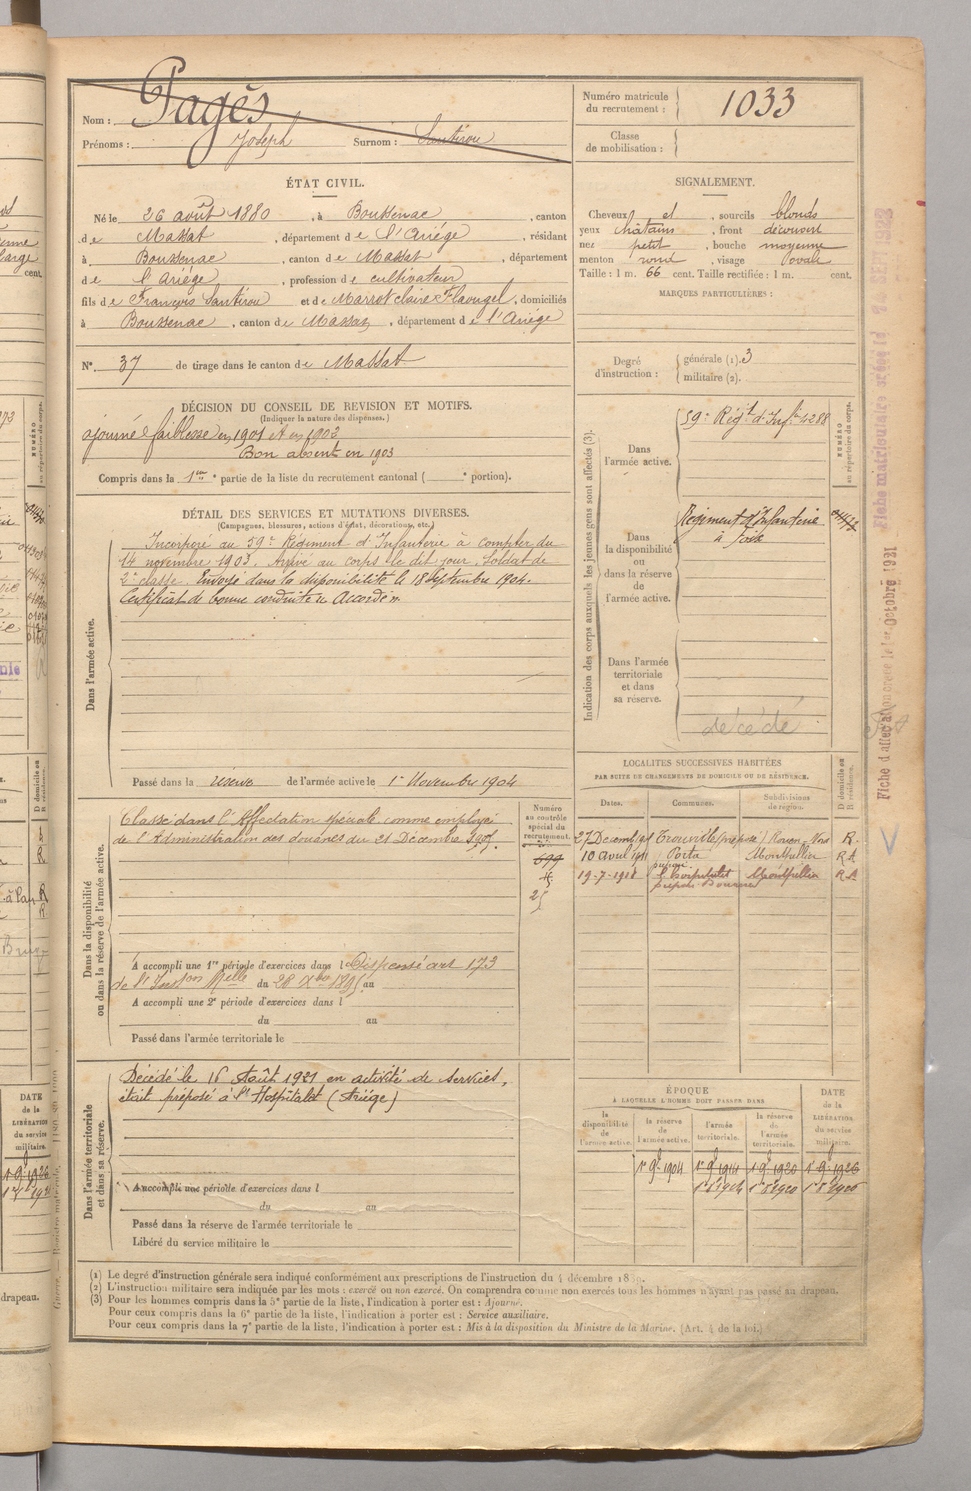 Nom : Pagès
Prénoms : Joseph Surnom : Santirou
Numéro matricule du recrutement : 1033
Classe de mobilisation :
ÉTAT CIVIL.
Né le 26 août 1880, à Boussenac, canton
de Massat, département de l'Ariége, résidant
à Boussenac, canton de Massat, département
de l'Ariége, profession de cultivateur
fils de François Santirou et de Marrot claire, domiciliés
à Boussenac, canton de Massat, département de l'Ariége
N° 37 de tirage dans le canton de Massat
SIGNALEMENT.
Cheveux et, sourcils blonds
yeux chatains, front découvert
nez petit, bouche moyenne
menton rond, visage ovale
Taille : 1 m. 66 cent. Taille rectifiée : 1 m. cent.
MARQUES PARTICULIÈRES :
Degré d'instruction :
générale (1). 3
militaire (2).
DÉCISION DU CONSEIL DE REVISION ET MOTIFS.
(Indiquer la nature des dispenses.)
ajourné faiblesse en 1901 et en 1902
Bon absent en 1903
Compris dans la 1re partie de la liste du recrutement cantonal ( portion).
DÉTAIL DES SERVICES ET MUTATIONS DIVERSES.
(Campagnes, blessures, actions d'éclat, décorations, etc.)
Dans l'armée active.
Incorporé au 59e Régiment d'Infanterie à compter du
14 novembre 1903. Arrivé au corps le dit jour, Soldat de
2e classe. Envoyé dans la disponibilité le 18 Septembre 1904.
Certificat de bonne conduite "Accordé"
Passé dans la réserve de l'armée active le 1er Novembre 1904
Indication des corps auxquels les jeunes gens sont affectés (3).
NUMÉRO au répertoire du corps.
Dans l'armée active.
59e Régt d'Inf. 4288
Dans la disponibilité ou dans la réserve de l'armée active.
Régiment d'Infanterie
à Foix
Dans l'armée territoriale et dans sa réserve.
décédé
Dans la disponibilité ou dans la réserve de l'armée active.
Classé dans l'Affectation spéciale comme employé
de l'Administration des douanes du 21 Décembre 1907.
Numéro au contrôle spécial du recrutement.
699
A accompli une 1re période d'exercices dans l Dispensé art 173
de l'Inston Melle du 28 Xbre 1895 au
A accompli une 2e période d'exercices dans l
du au
Passé dans l'armée territoriale le
LOCALITÉS SUCCESSIVES HABITÉES
PAR SUITE DE CHANGEMENTS DE DOMICILE OU DE RÉSIDENCE.
Dates. Communes. Subdivisions de région. D domicile ou R résidence.
Trouville (préposé) Rouen-Nord R.
10 Avril 1911 Porta Montpellier RA
19-7-1918 l'hospitalet Montpellier RA
Dans l'armée territoriale et dans sa réserve.
Décédé le 16 Août 1921 en activité de services,
était préposé à l'Hospitalet (Ariége)
A accompli une période d'exercices dans l
du au
Passé dans la réserve de l'armée territoriale le
Libéré du service militaire le
ÉPOQUE
À LAQUELLE L'HOMME DOIT PASSER DANS
la disponibilité de l'armée active.
la réserve de l'armée active.
l'armée territoriale.
la réserve de l'armée territoriale.
DATE de la LIBÉRATION du service militaire.
1er 9bre 1904 1er 9bre 1914 1er 9bre 1920 1er 9bre 1926
(1) Le degré d'instruction générale sera indiqué conformément aux prescriptions de l'instruction du 4 décembre
(2) L'instruction militaire sera indiquée par les mots : exercé ou non exercé. On comprendra comme non exercés tous les hommes n'ayant pas passé au drapeau.
(3) Pour les hommes compris dans la 5e partie de la liste, l'indication à porter est : Ajourné.
Pour ceux compris dans la 6e partie de la liste, l'indication à porter est : Service auxiliaire.
Pour ceux compris dans la 7e partie de la liste, l'indication à porter est : Mis à la disposition du Ministre de la Marine. (Art. 4 de la loi.)
Fiche matriculaire créée le
Fiche d'affectation créée le 1er Octobre 1921